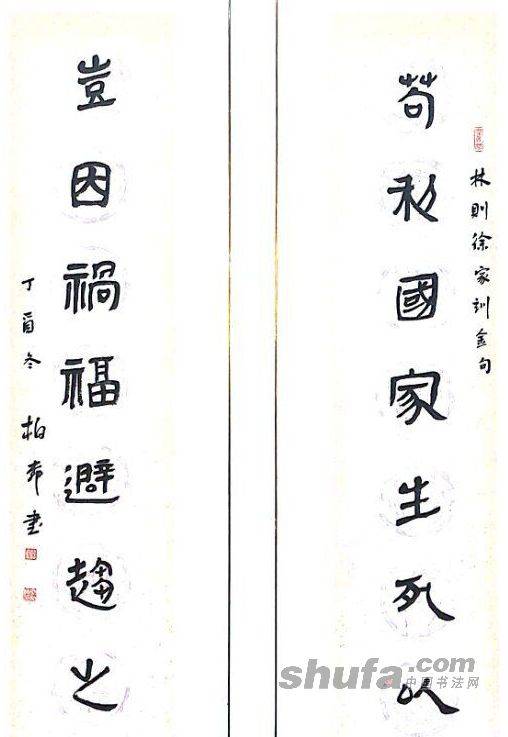 林則徐家訓金句
苟利國家生死以
豈因禍福避趨之
丁酉冬 柏希書
shufa.com
中国书法网